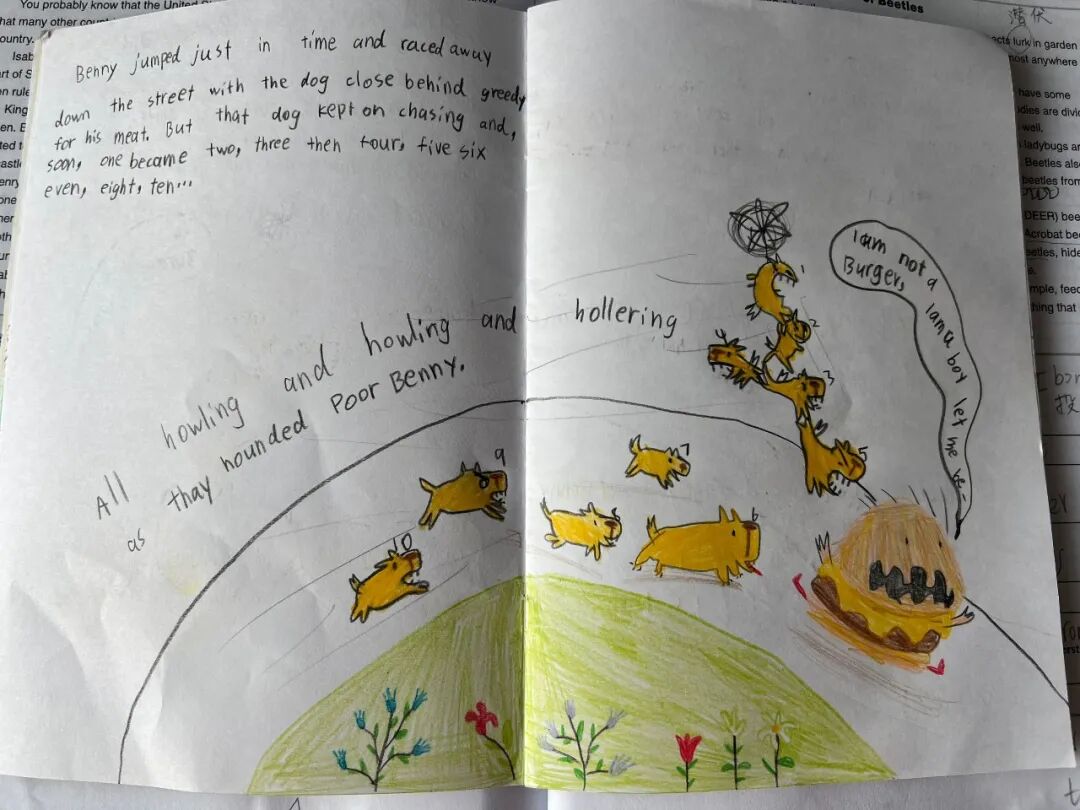 You probably know that the United
hat many other
ountry.
Isab
art of S
en rule
King
en. E
ted t
castle
enry
one
her
oth
Benny jumped just in time and raced away
down the street with the dog close behind greedy
for his meat. But that dog kept on chasing and,
soon, one became two, three then four, five six
even, eight, ten...
All howling and howling and hollering
as thay hounded Poor Benny.
I am not a
Burger,
I am a boy let me be
1
2
3
4
5
6
7
9
10
of Beetles
潜伏
ects lurk in garden
most anywhere
have some
dies are divid
well.
ladybugs ar
Beetles also
beetles from
DEER) bee
Acrobat bee
eetles, hide
mple, feed
thing that
投